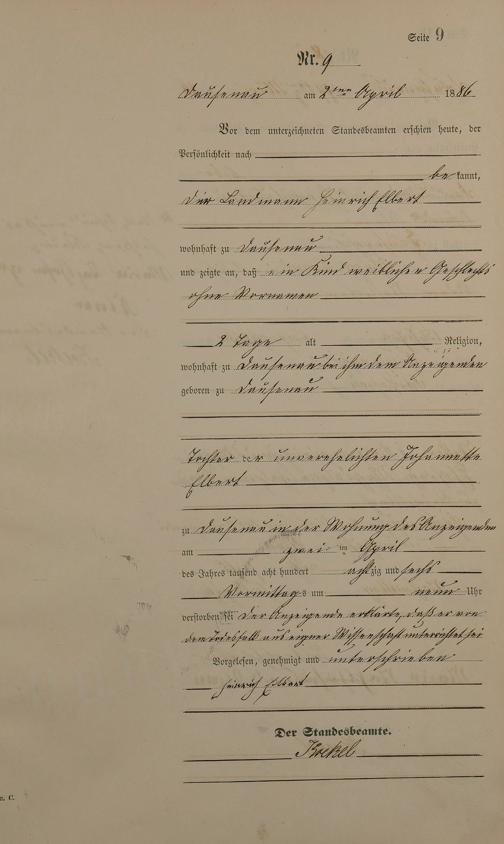 Seite 9
Nr. 9
Dausenau am 2ten April 1886
Vor dem unterzeichneten Standesbeamten erschien heute, der
Persönlichkeit nach
be kannt,
der Landmann Heinrich Elbert
wohnhaft zu Dausenau
und zeigte an, daß ein Kind weiblichen Geschlechts
ohne Vornamen
2 Tage alt Religion,
wohnhaft zu Dausenau bei ihm dem Anzeigenden
geboren zu Dausenau
Tochter der unverehelichten Johannette
Elbert
zu Dausenau in der Wohnung des Anzeigenden
am zwei April
des Jahres tausend acht hundert achtzig und sechs
Vormittags um neun Uhr
verstorben sei der Anzeigende erklärte, daß er von
dem Todesfall aus eigner Wissenschaft unterrichtet sei
Vorgelesen, genehmigt und unterschrieben
Heinrich Elbert
Der Standesbeamte.